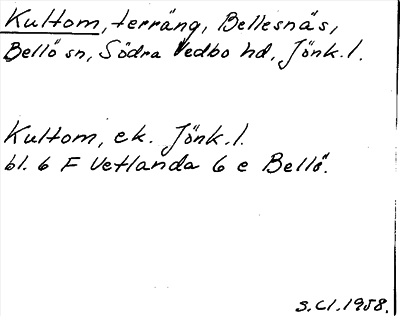 Kultom, terräng, Bellesnäs,
Bellö sn, Södra Vedbo hd, Jönk. l.
Kultom, ek. Jönk. l.
bl. 6 F Vetlanda 6 e Bellö.
S. Cl. 1958.